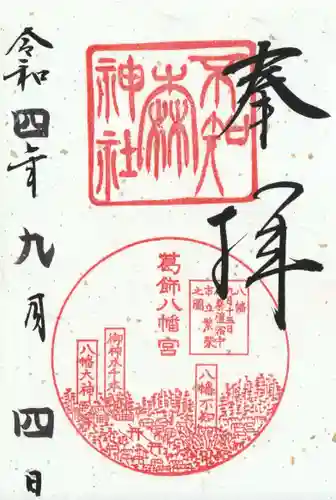 奉拝
不知森神社
葛飾八幡宮
八幡不知
御神木千本
八幡大神
令和四年九月四日